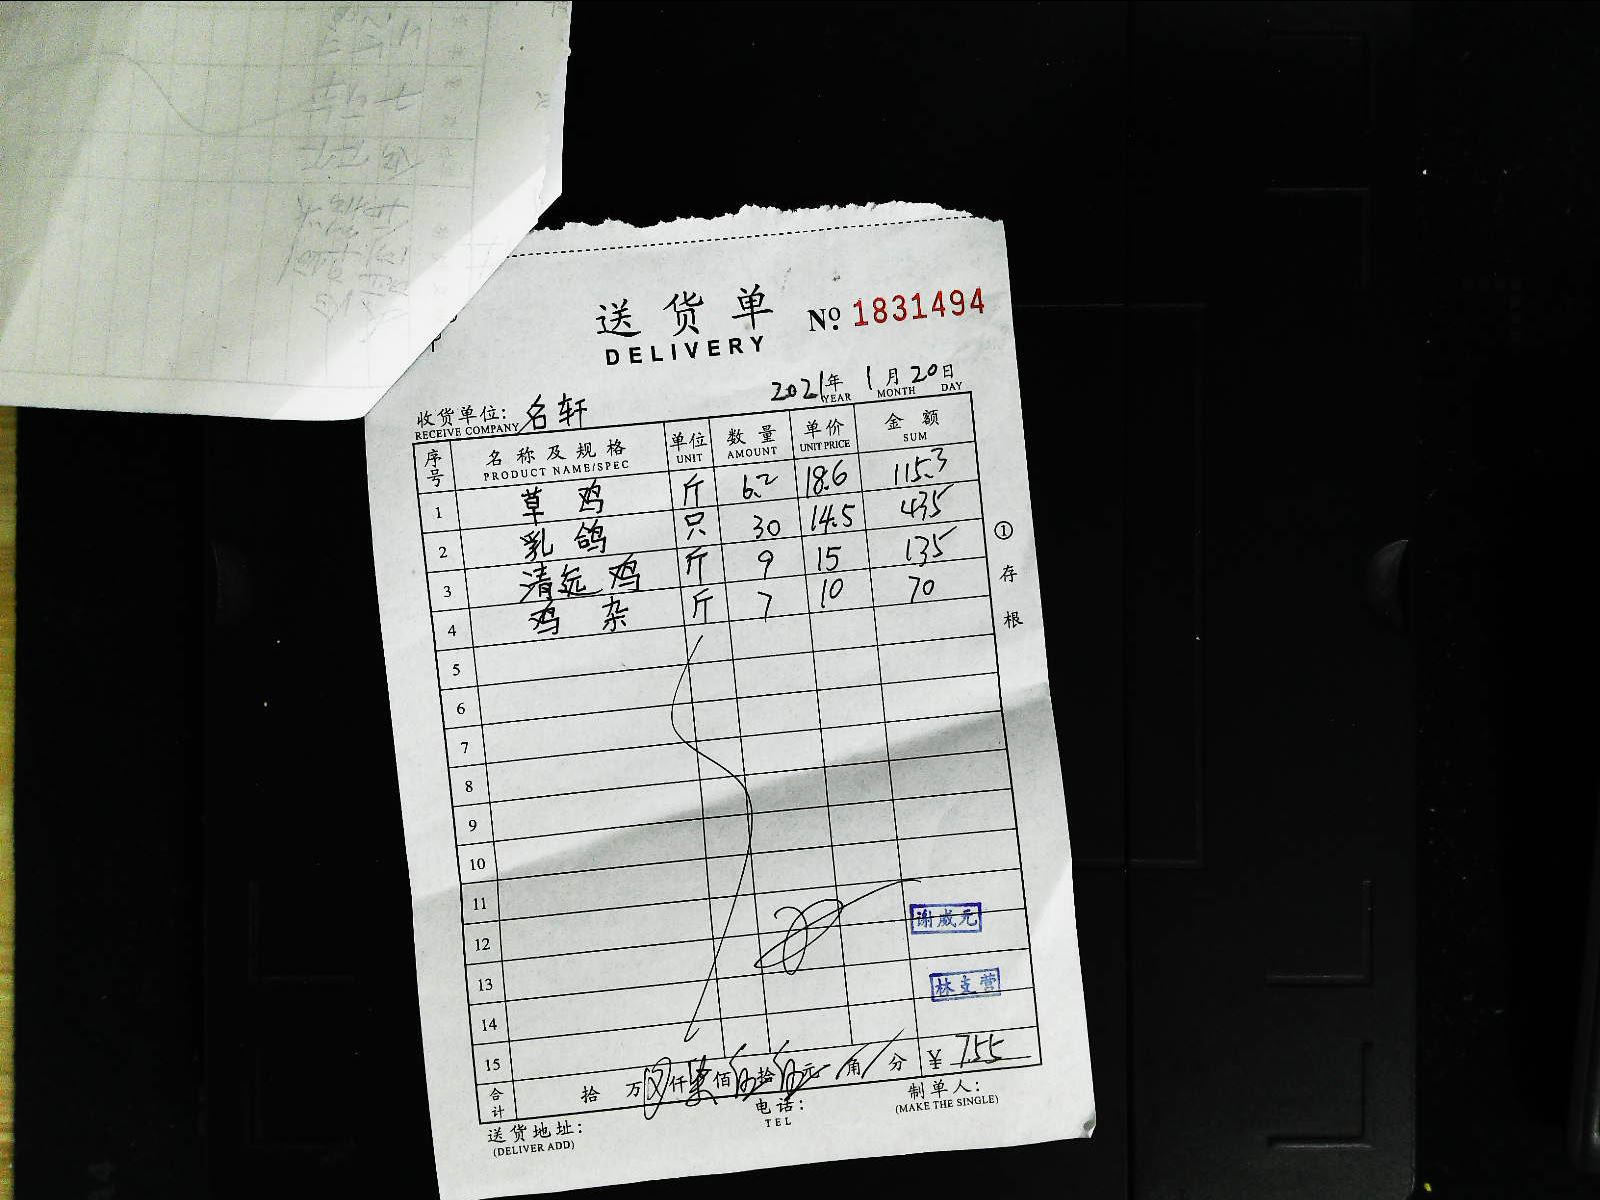 送货单 No. 1831494
DELIVERY
2021年 1月 20日
YEAR MONTH DAY
收货单位: 名轩
RECEIVE COMPANY
序号 名称及规格 单位 数量 单价 金额
PRODUCT NAME/SPEC UNIT AMOUNT UNIT PRICE SUM
1 草鸡 斤 6.2 18.6 115.3
2 乳鸽 只 30 14.5 435
3 清远鸡 斤 9 15 135
4 鸡杂 斤 7 10 70
5
6
7
8
9
10
11
12
13
14
15
谢威元
林支营
① 存根
合计 拾 万 仟 柒 佰 伍 拾 伍 元 角 分 ¥ 755
送货地址: 电话: 制单人:
(DELIVER ADD) TEL (MAKE THE SINGLE)